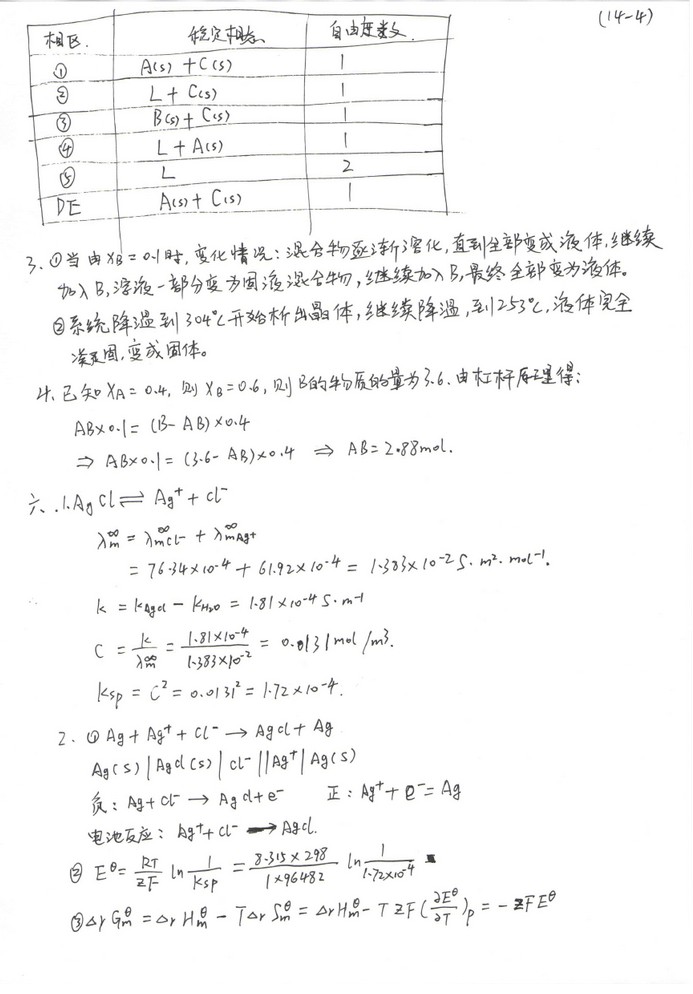 (14-4)
相区. 稳定相态 自由度数.
① A(s) + C(s) 1
② L + C(s) 1
③ B(s) + C(s) 1
④ L + A(s) 1
⑤ L 2
DE A(s) + C(s) 1
3. ①当由xB = 0.1时, 变化情况: 混合物逐渐溶化, 直到全部变成液体, 继续
加入B, 溶液一部分变为固液混合物, 继续加入B, 最终全部变为液体。
②系统降温到304℃开始析出晶体, 继续降温, 到253℃, 液体完全
凝固, 变成固体。
4. 已知xA = 0.4, 则xB = 0.6, 则B的物质的量为3.6. 由杠杆原理得:
AB×0.1 = (B - AB)×0.4
⇒ AB×0.1 = (3.6 - AB)×0.4 ⇒ AB = 2.88mol.
六、1. AgCl ⇌ Ag⁺ + Cl⁻
λm∞ = λm∞Cl⁻ + λm∞Ag⁺
= 76.34×10⁻⁴ + 61.92×10⁻⁴ = 1.383×10⁻² S·m²·mol⁻¹.
k = kAgCl - kH₂O = 1.81×10⁻⁴ S·m⁻¹
C = k/λm∞ = 1.81×10⁻⁴/1.383×10⁻² = 0.0131mol/m³.
Ksp = C² = 0.0131² = 1.72×10⁻⁴.
2. ① Ag + Ag⁺ + Cl⁻ → AgCl + Ag
Ag(s) | AgCl(s) | Cl⁻ || Ag⁺ | Ag(s)
负: Ag + Cl⁻ → AgCl + e⁻ 正: Ag⁺ + e⁻ = Ag
电池反应: Ag⁺ + Cl⁻ → AgCl.
② Eᶿ = RT/zF ln 1/Ksp = 8.315×298/1×96482 ln 1/1.72×10⁻⁴
③ ΔrGmᶿ = ΔrHmᶿ - TΔrSmᶿ = ΔrHmᶿ - TzF(∂Eᶿ/∂T)p = -zFEᶿ